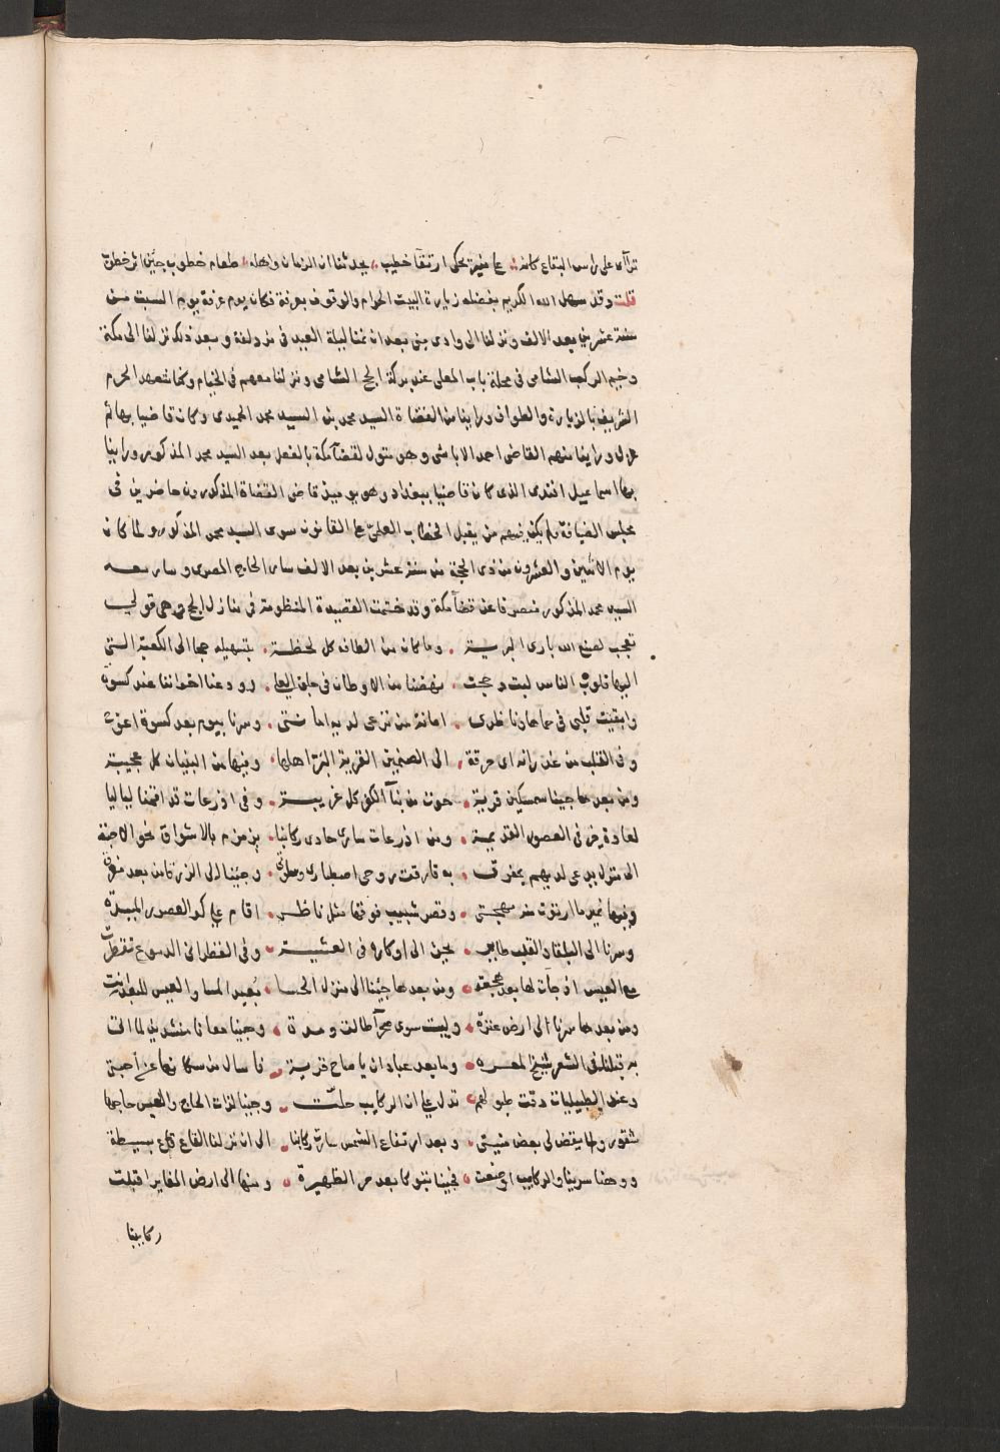 تراآى على راس البقاع كانه على منبر يحكى ارتقا خطيب يحدثنا ان الزمان واهله طعام خطوب جئن اثر خطوب
قلت وقد سهل الله الكريم بفضله زيارة البيت الحرام والوقوف بعرفة فكان يوم عرفة يوم السبت من
سنة عشرين بعد الالف ونزلنا الى وادى منى بعد ان نمنا ليلة العيد فى مزدلفة وبعد ذلك نزلنا الى مكة
وخيم الركب الشامى فى محلة باب المعلى عند بركة الحج الشامى ونزلنا معهم فى الخيام وكنا نتعهد الحرم
الشريف بالزيارة والطواف وراينا من القضاة السيد محمد بن السيد محمد الحميدى وكان قاضيا بها ثم
عزل وراينا منهم القاضى احمد الاياشى وهو متول لقضآ مكة بالفعل بعد السيد محمد المذكور وراينا
بها اسماعيل افندى الذى كان قاضيا ببغداد وهو يوميذ قاضى القضاة المذكورون حاضرين فى
مجلس الضيافة ولم يكن فيهم من يقبل الخطاب العلمى على القانون سوى السيد محمد المذكور ولما كان
يوم الاثنين والعشرون من ذى الحجة من سنة عشرين بعد الالف سار الحاج المصرى وسار معه
السيد محمد المذكور منصرفا عن قضآ مكة وقد ختمت القصيدة المنظومة فى منازل الحج وهى قولى
تعجب لصنع الله بارى البرية وما كان من الطافه كل لحظة بتسهيله حجا الى الكعبة التى
اليها قلوب الناس لبت وعجت نهضنا من الاوطان فى جلق العلا وودعنا اخواننا عند كسوة
وابقيت قلبى فى حماها ونا ظرى امانة من نرعى لديه امانتى وسرنا بيوم بعد كسوة اعزت
وفى القلب من نيرانه اى حرقة الى الصنمين القرية البر اهلها وفيها من البنيان كل عجيبة
ومن بعدها جينا سمسكين قرية حوت من بنآ الكفر كل غريبة وفى اذرعات قد اقمنا لياليا
لعادة جرت فى العصور القديمة ومن اذرعات سار حادى ركابنا يزمزم بالاشواق نحو الاحبة
الى منزل يدعى لديهم بمفرق به فارقت روحى اصطبارى وسلوتى وجينا الى الزرقا من بعد مفرق
وفيها غدير ما ارتوت منه مهجتى وقصر شبيب فوقها مثل ناظر اقام على كر العصور المبيدة
وسرنا الى البلقا والقلب طاير يحن الى اوكاره فى العشية وفى القطرانى الدموع تقطرت
مع العيس اذ جآت لها بعد هجعة ومن بعدها جئنا الى منزل الحسا بعيد المسا والعيس للبعد انت
ومن بعدها سرنا الى ارض عنزة وليست سوى صحرآ طالت ومدة وجينا معانا منشدين لما اتى
به قبلنا فى الشعر شيخ المعره وما بعد عبادان يا صاح قرية فاسال من سكانها عن أحبتى
وعند الطبيليات دقت طبولهم تدل على ان الركايب حلت وجينا لذات الحاج والعيس حاجها
شقور ولما يقض لى بعض منيتى وبعد ارتفاع الشمس سارت ركابنا الى ان نزلنا القاع قاع بسيطة
ورحنا سرينا والركايب اوضعت فجينا تبوكا بعد حر الظهيرة ومنها الى ارض المغاير اقبلت
ركايبنا